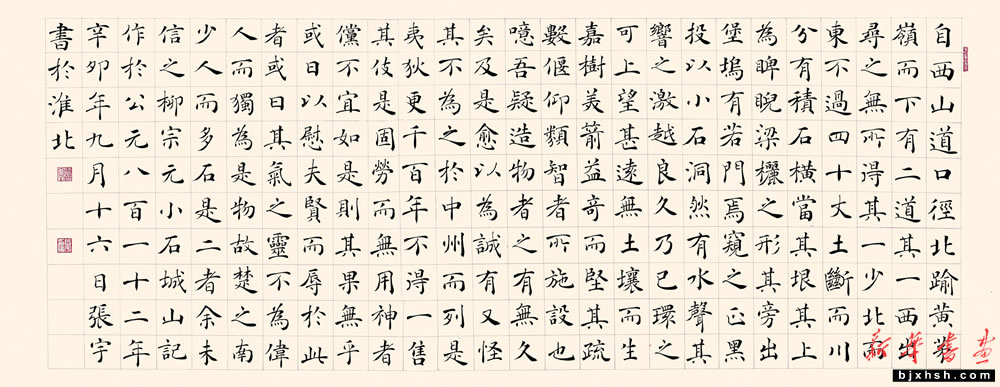 自西山道口徑北踰黃茅
嶺而下有二道其一西出
尋之無所得其一少北而
東不過四十丈土斷而川
分有積石橫當其垠其上
為睥睨梁欐之形其旁出
堡塢有若門焉窺之正黑
投以小石洞然有水聲其
響之激越良久乃已環之
可上望甚遠無土壤而生
嘉樹美箭益奇而堅其疏
數偃仰類智者所施設也
噫吾疑造物者之有無久
矣及是愈以為誠有又怪
其不為之於中州而列是
夷狄更千百年不得一售
其伎是固勞而無用神者
儻不宜如是則其果無乎
或曰以慰夫賢而辱於此
者或曰其氣之靈不為偉
人而獨為是物故楚之南
少人而多石是二者余未
信之柳宗元小石城山記
作於公元八百一十二年
辛卯年九月十六日張宇
書於淮北
新华书画
bjxhsh.com